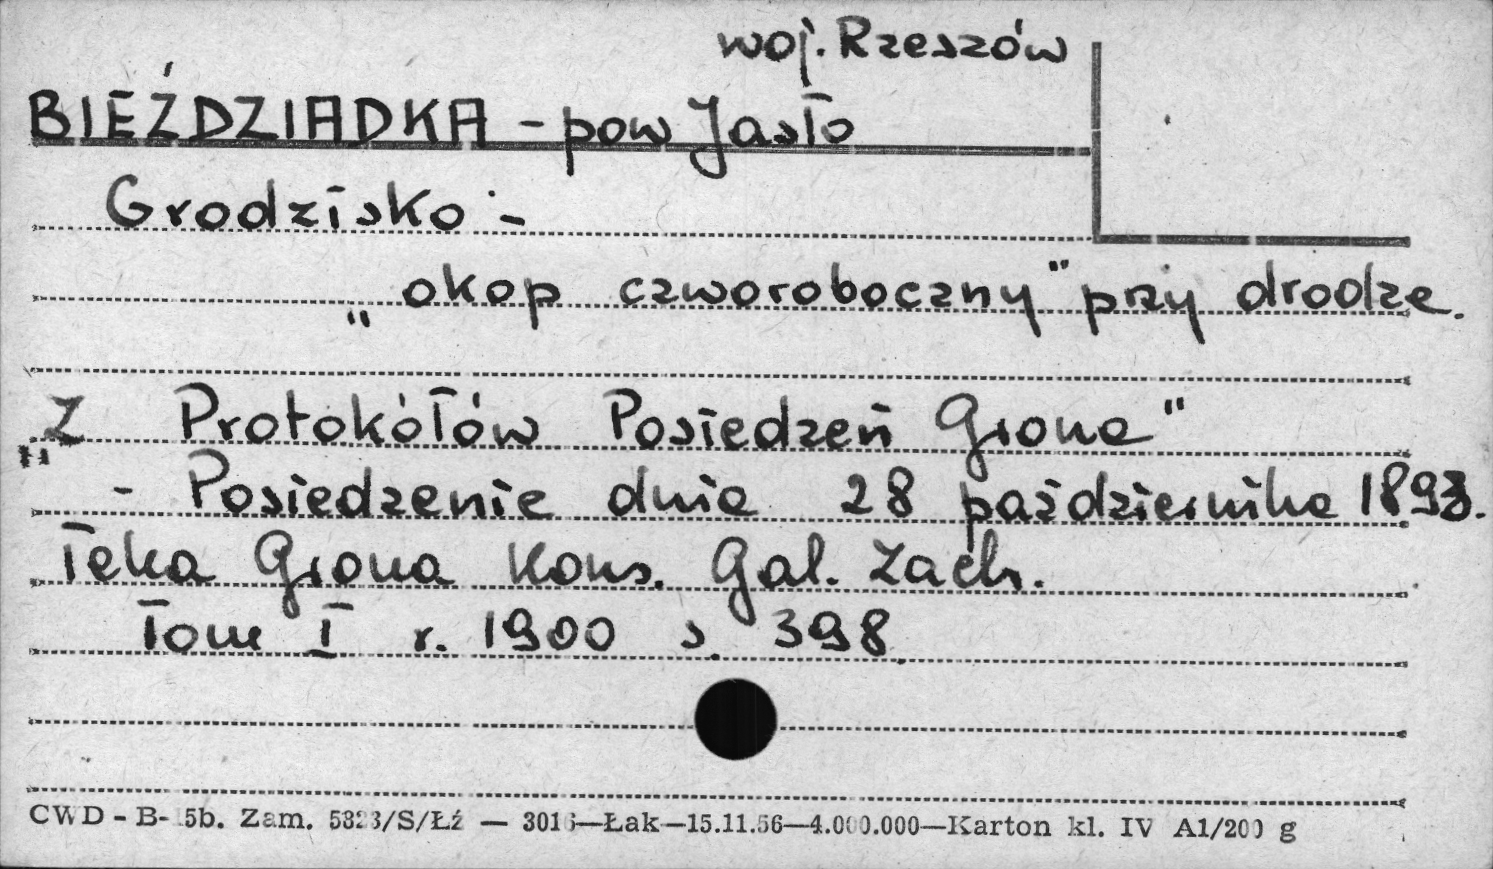 woj. Rzeszów
BIEŹDZIADKA - pow Jasło
Grodzisko -
„okop czworoboczny" przy drodze.
„Z Protokółów Posiedzeń Grona"
- Posiedzenie dnia 28 października 1893.
Teka Grona Kons. Gal. Zach.
Tom I r. 1900 s. 398
CWD - B- 5b. Zam. 5323/S/Łź — 3016—Łak—15.11.56—4.000.000—Karton kl. IV A1/200 g